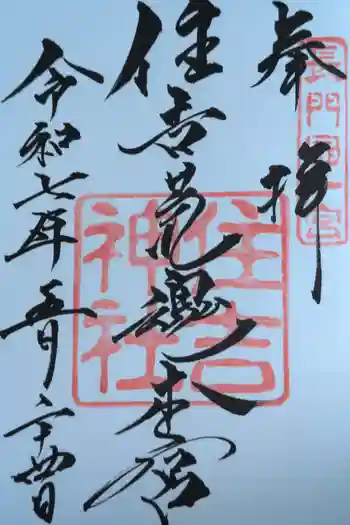 奉拝
長門國一宮
住吉荒魂之本宮
住吉神社
令和七年五月二十四日